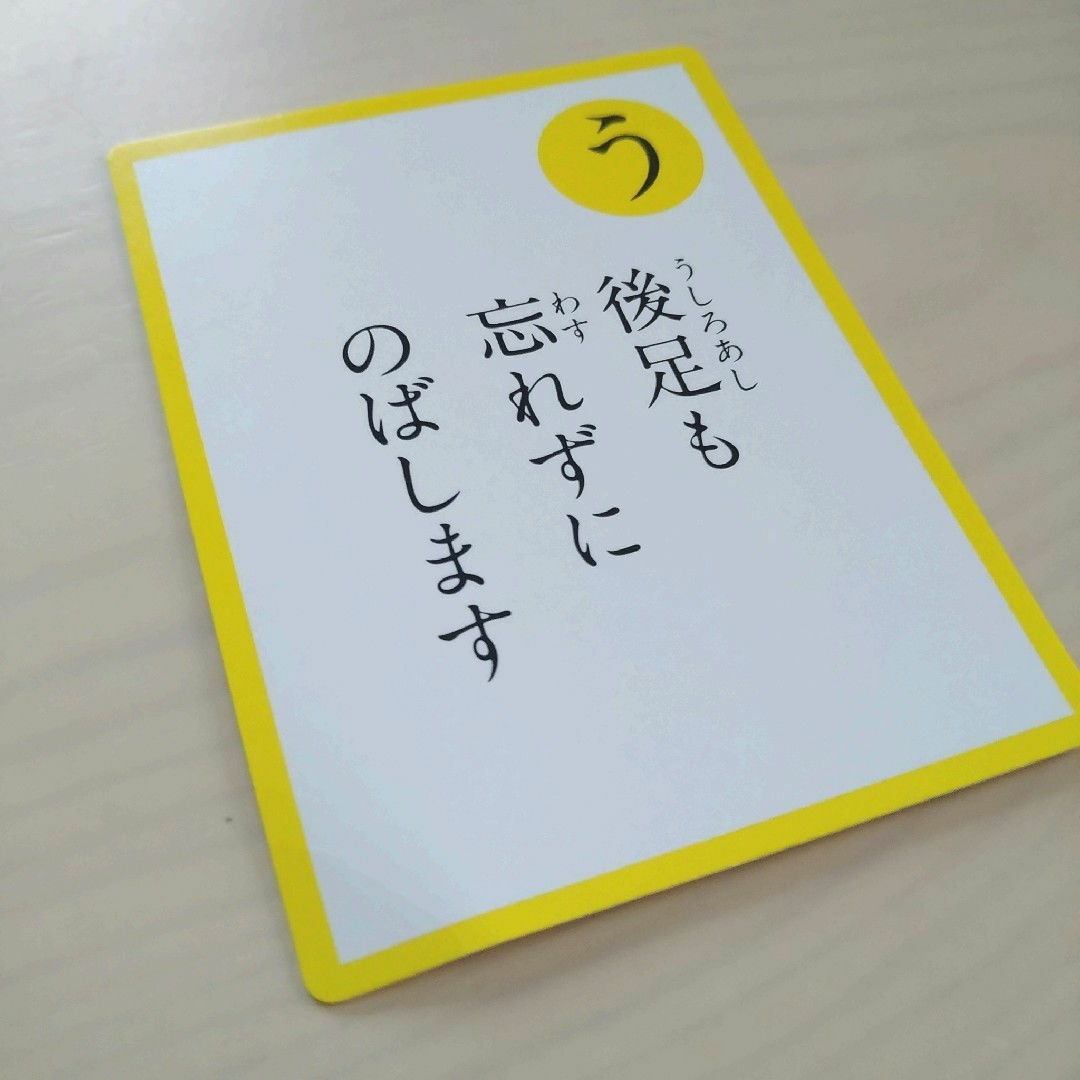 う
後足も
忘れずに
のばします
うしろあし
わす